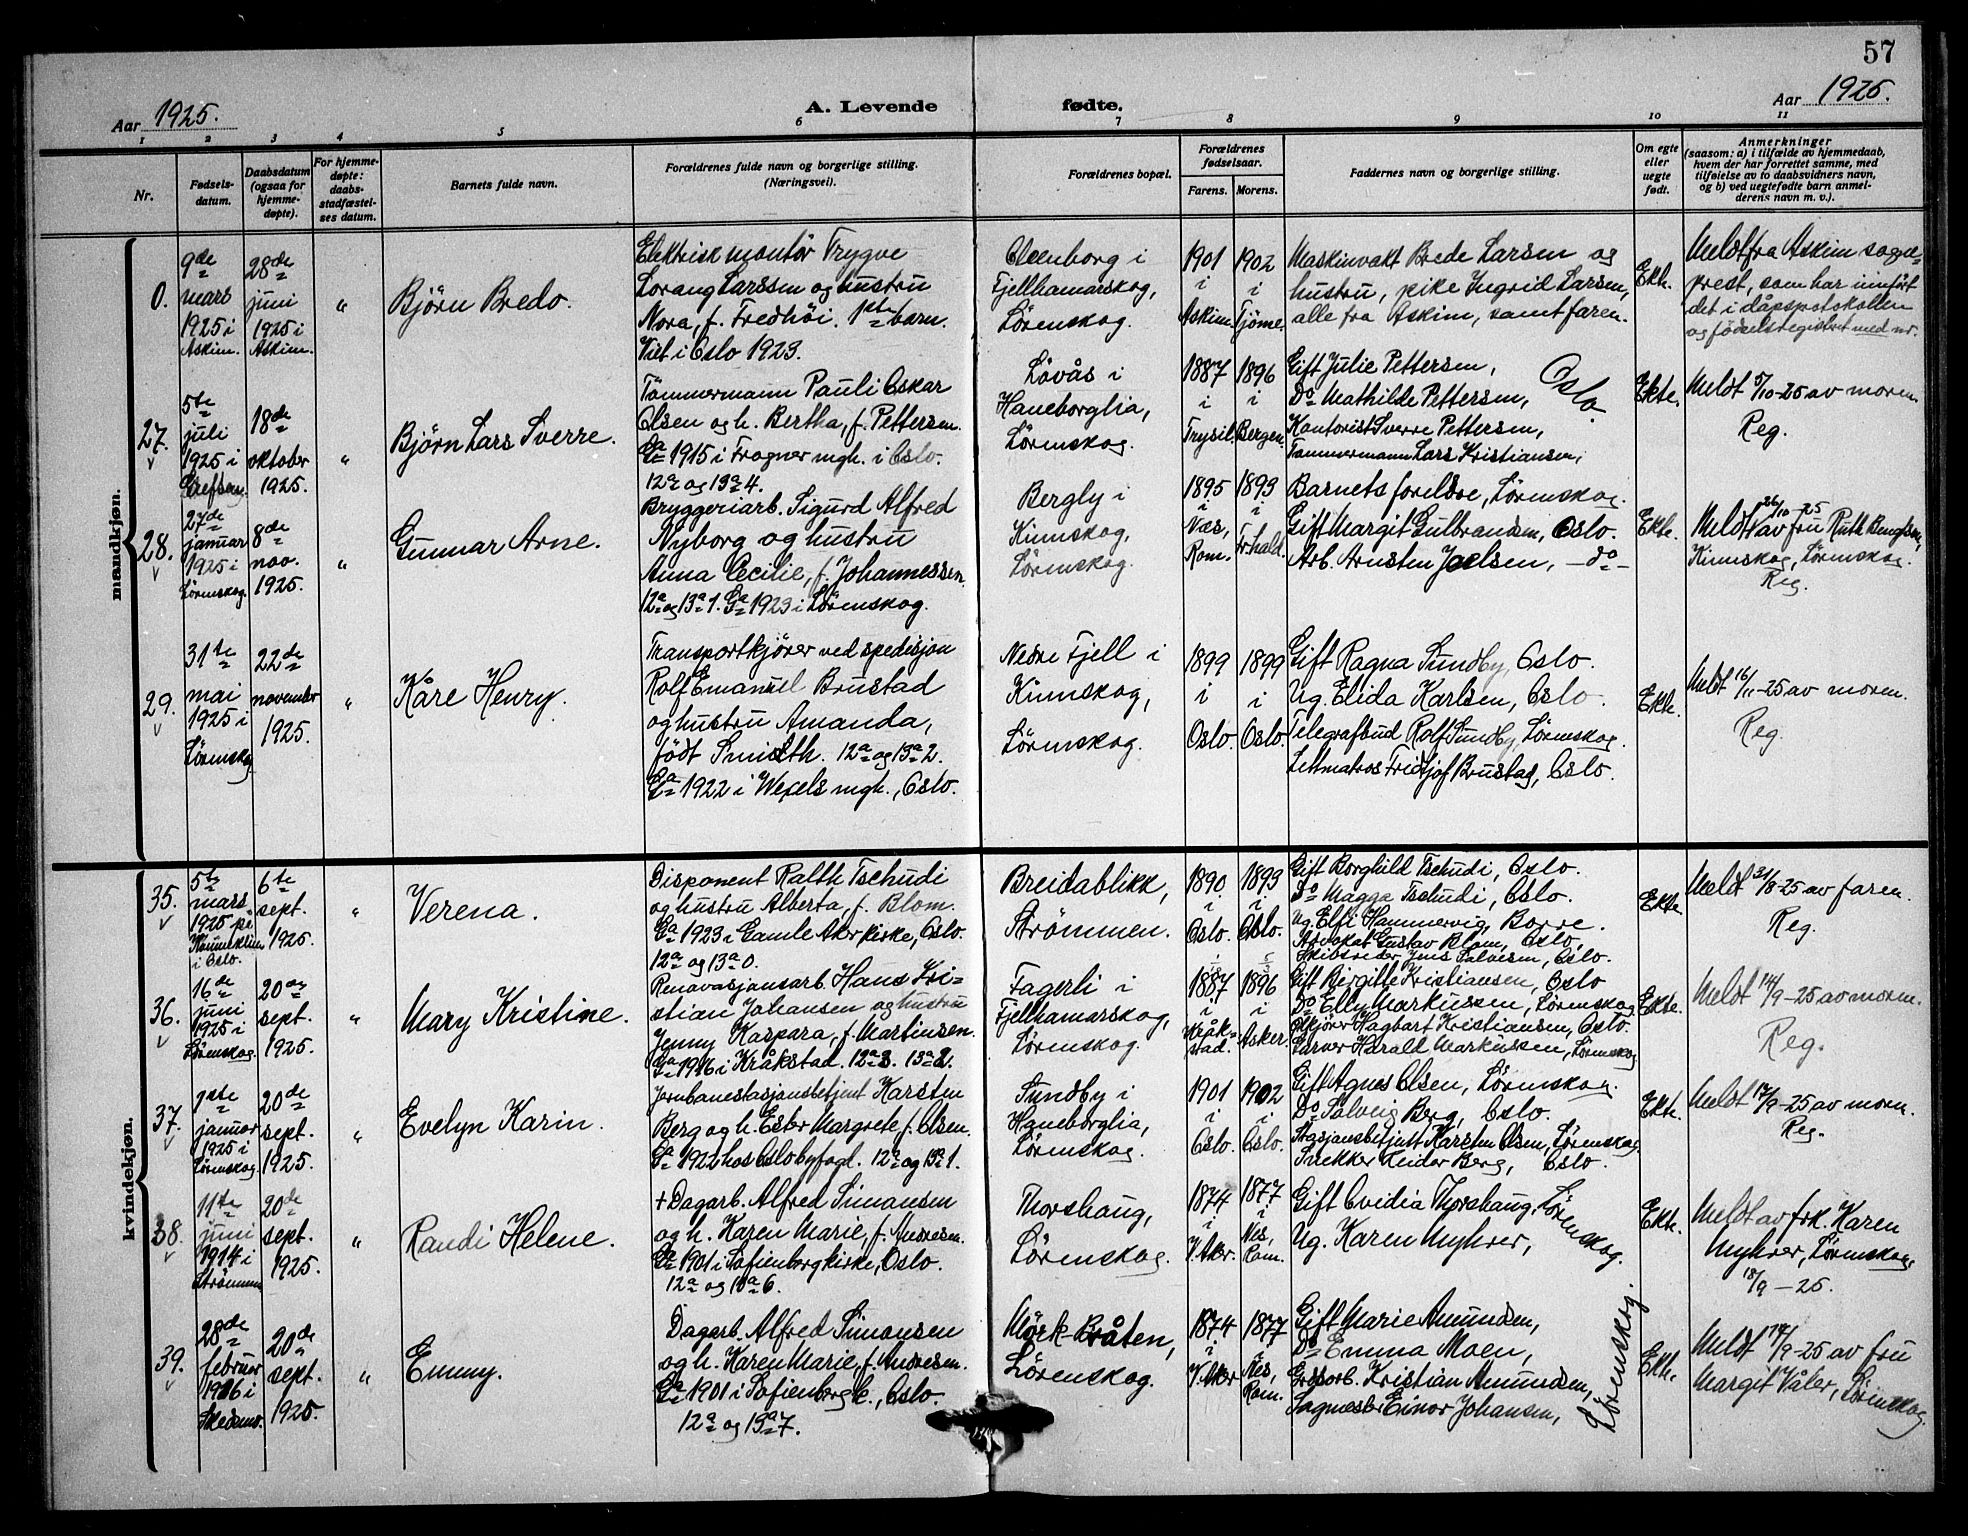 57
Aar 1925.
A. Levende fødte.
Aar 1925.
1 2 3 4 5 6 7 8 9 10 11
Nr.
Fødsels-
datum.
Daabsdatum
(ogsaa for
hjemme-
døpte).
For hjemme-
døpte:
daabs-
stadfæstel-
ses datum.
Barnets fulde navn.
Forældrenes fulde navn og borgerlige stilling.
(Næringsvei).
Forældrenes bopæl.
Forældrenes
fødselsaar.
Farens. Morens.
Faddernes navn og borgerlige stilling.
Om egte
eller
uegte
født.
Anmerkninger
(saasom: a) i tilfælde av hjemmedaab,
hvem der har forrettet samme, med
tilføielse av to daabsvidners navn,
og b) ved uegtefødte barn anmel-
derens navn m. v.).
mandkjøn.
0.
9de
mars
1925 i
Askim.
28de
juni
1925 i
Askim.
"
Björn Bredo.
Elektrisk montör Trygve
Lorang Larssen og hustru
Nora, f. Fredhöi. 1ste barn.
Viet i Oslo 1923.
Fjellhamarskog,
Lörenskog.
1901
i
Askim.
1902
i
Tjöme.
Maskinvakt Brede Larsen og
hustru, pike Ingrid Larsen,
alle fra Askim, samt faren.
Ekte.
Meldt fra Askim sogne-
prest, som har innfört
det i dåpsprotokollen
og födselsregistret med nr.
27.
5te
juli
1925 i
Grefsen.
18de
oktober
1925.
"
Björn Lars Sverre.
Tömmermann Pauli Oskar
Olsen og h. Bertha, f. Pettersen.
Ga 1915 i Frogner mgh. i Oslo.
12a og 13a 4.
Lövås i
Haneborglia,
Lörenskog.
1887
i
Trysil.
1896
i
Bergen.
Gift Julie Pettersen,
Do Mathilde Pettersen,
Kontorist Sverre Pettersen,
Tömmermann Lars Kristiansen,
Oslo.
Ekte.
Meldt 5/10-25 av moren.
Reg.
28.
27de
januar
1925 i
Lörenskog.
8de
nov.
1925.
"
Gunnar Arne.
Bryggeriarb. Sigurd Alfred
Nyborg og hustru
Anna Cecilie, f. Johannessen.
12a og 13a 1. Ga 1923 i Lörenskog.
Bergly i
Kinnskog,
Lörenskog.
1895
i
Næs,
Rom.
1893
i
Fr.hald.
Barnets foreldre, Lörenskog.
Gift Margit Gulbrandsen, Oslo.
Arb. Arnsten Joelsen, -do-
Ekte.
Meldt 26/10-25
av fru Ruth Bengtsen,
Kinnskog, Lörenskog.
Reg.
29.
31te
mai
1925 i
Lörenskog
22de
november
1925.
"
Kåre Henry.
Transportkjörer ved spedisjon
Rolf Emanuel Brustad
og hustru Amanda,
födt Smidth. 12a og 13a 2.
Ga 1922 i Wexels mgh., Oslo.
Nedre Fjell i
Kinnskog,
Lörenskog.
1899
i
Oslo.
1899
i
Oslo.
Gift Ragna Sundby, Oslo.
Ug. Elida Karlsen, Oslo.
Telegrafbud Rolf Sundby, Lörenskog.
Lettmatros Fridtjof Brustad, Oslo.
Ekte.
Meldt 16/11-25 av moren.
Reg.
kvindekjøn.
35.
5te
mars
1925 på
i Oslo.
6te
sept.
1925.
"
Verena.
Disponent Ralth Tschudi
og hustru Alberta, f. Blom.
Ga 1923 i Gamle Aker kirke, Oslo.
12a og 13a 0.
Breidablikk,
Strömmen.
1890
i
Oslo.
1893
i
Oslo.
Gift Borghild Tschudi, Oslo.
Do Magga Tschudi, Oslo.
Ug. Elfi Hammervig, Borre.
Advokat Gustav Blom, Oslo,
Skibsreder Jens Salvesen, Oslo.
Ekte.
Meldt 31/8-25 av faren.
Reg.
36.
16de
juni
1925 i
Lörenskog.
20de
sept.
1925.
"
Mary Kristine.
Renovasjonsarb. Hans Kri-
stian Johansen og hustru
Jenny Kaspara, f. Martinsen.
Ga 1916 i Kråkstad. 12a 3. 13a 2.
Fagerli i
Fjellhamarskog,
Lörenskog.
1887
i
Kråk-
stad.
1896
i
Asker.
Gift Birgitte Kristiansen, Oslo
Do Elly Markussen, Lörenskog.
Kjörer Hagbart Kristiansen, Oslo.
Garver Harald Markussen, Lörenskog
Ekte.
Meldt 14/9-25 av moren.
Reg.
37.
1ste
januar
1925 i
Lörenskog
20de
sept.
1925.
"
Evelyn Karin.
Jernbanestasjonsbetjent Karsten
Berg og h. Ester Margrete, f. Olsen.
Ga 1922 hos Oslo byfogd. 12a og 13a 1.
Sundby i
Haneborglia,
Lörenskog.
1901
i
Oslo.
1902
i
Oslo.
Gift Agnes Olsen, Lörenskog.
Do Solveig Berg, Oslo.
Stasjonsbetjent Karsten Olsen, Lörenskog
Snekker Reidar Berg, Oslo.
Ekte.
Meldt 17/9-25 av moren.
Reg.
38.
11te
juni
1914 i
Strömmen
20de
sept.
1925.
"
Randi Helene.
+ Dagarb. Alfred Simonsen
og h. Karen Marie, f. Andresen.
Ga 1901 i Sofienberg kirke, Oslo.
12a og 13a 6.
Thorshaug,
Lörenskog.
1874
i
V. Aker.
1877
i
Nes,
Rom.
Gift Ovidia Thorshaug,
Ug. Karen Myhrer,
Lörenskog.
Ekte.
Meldt av frk. Karen
Myhrer, Lörenskog,
18/9-25.
39.
28de
februar
1916 i
Skedsmo.
20de
sept.
1925.
"
Emmy.
Dagarb. Alfred Simonsen
og h. Karen Marie, f. Andresen.
Ga 1901 i Sofienberg k., Oslo.
12a og 13a 7.
Mörk-Bråten,
Lörenskog.
1874
i
V. Aker
1877
i
Nes,
Rom.
Gift Marie Amundsen,
Do Emma Moen,
Grosarb. Kristian Amundsen,
Sagmester Einar Johansen,
Lörenskog.
Ekte.
Meldt 14/9-25 av fru
Margit Våler, Lörenskog.